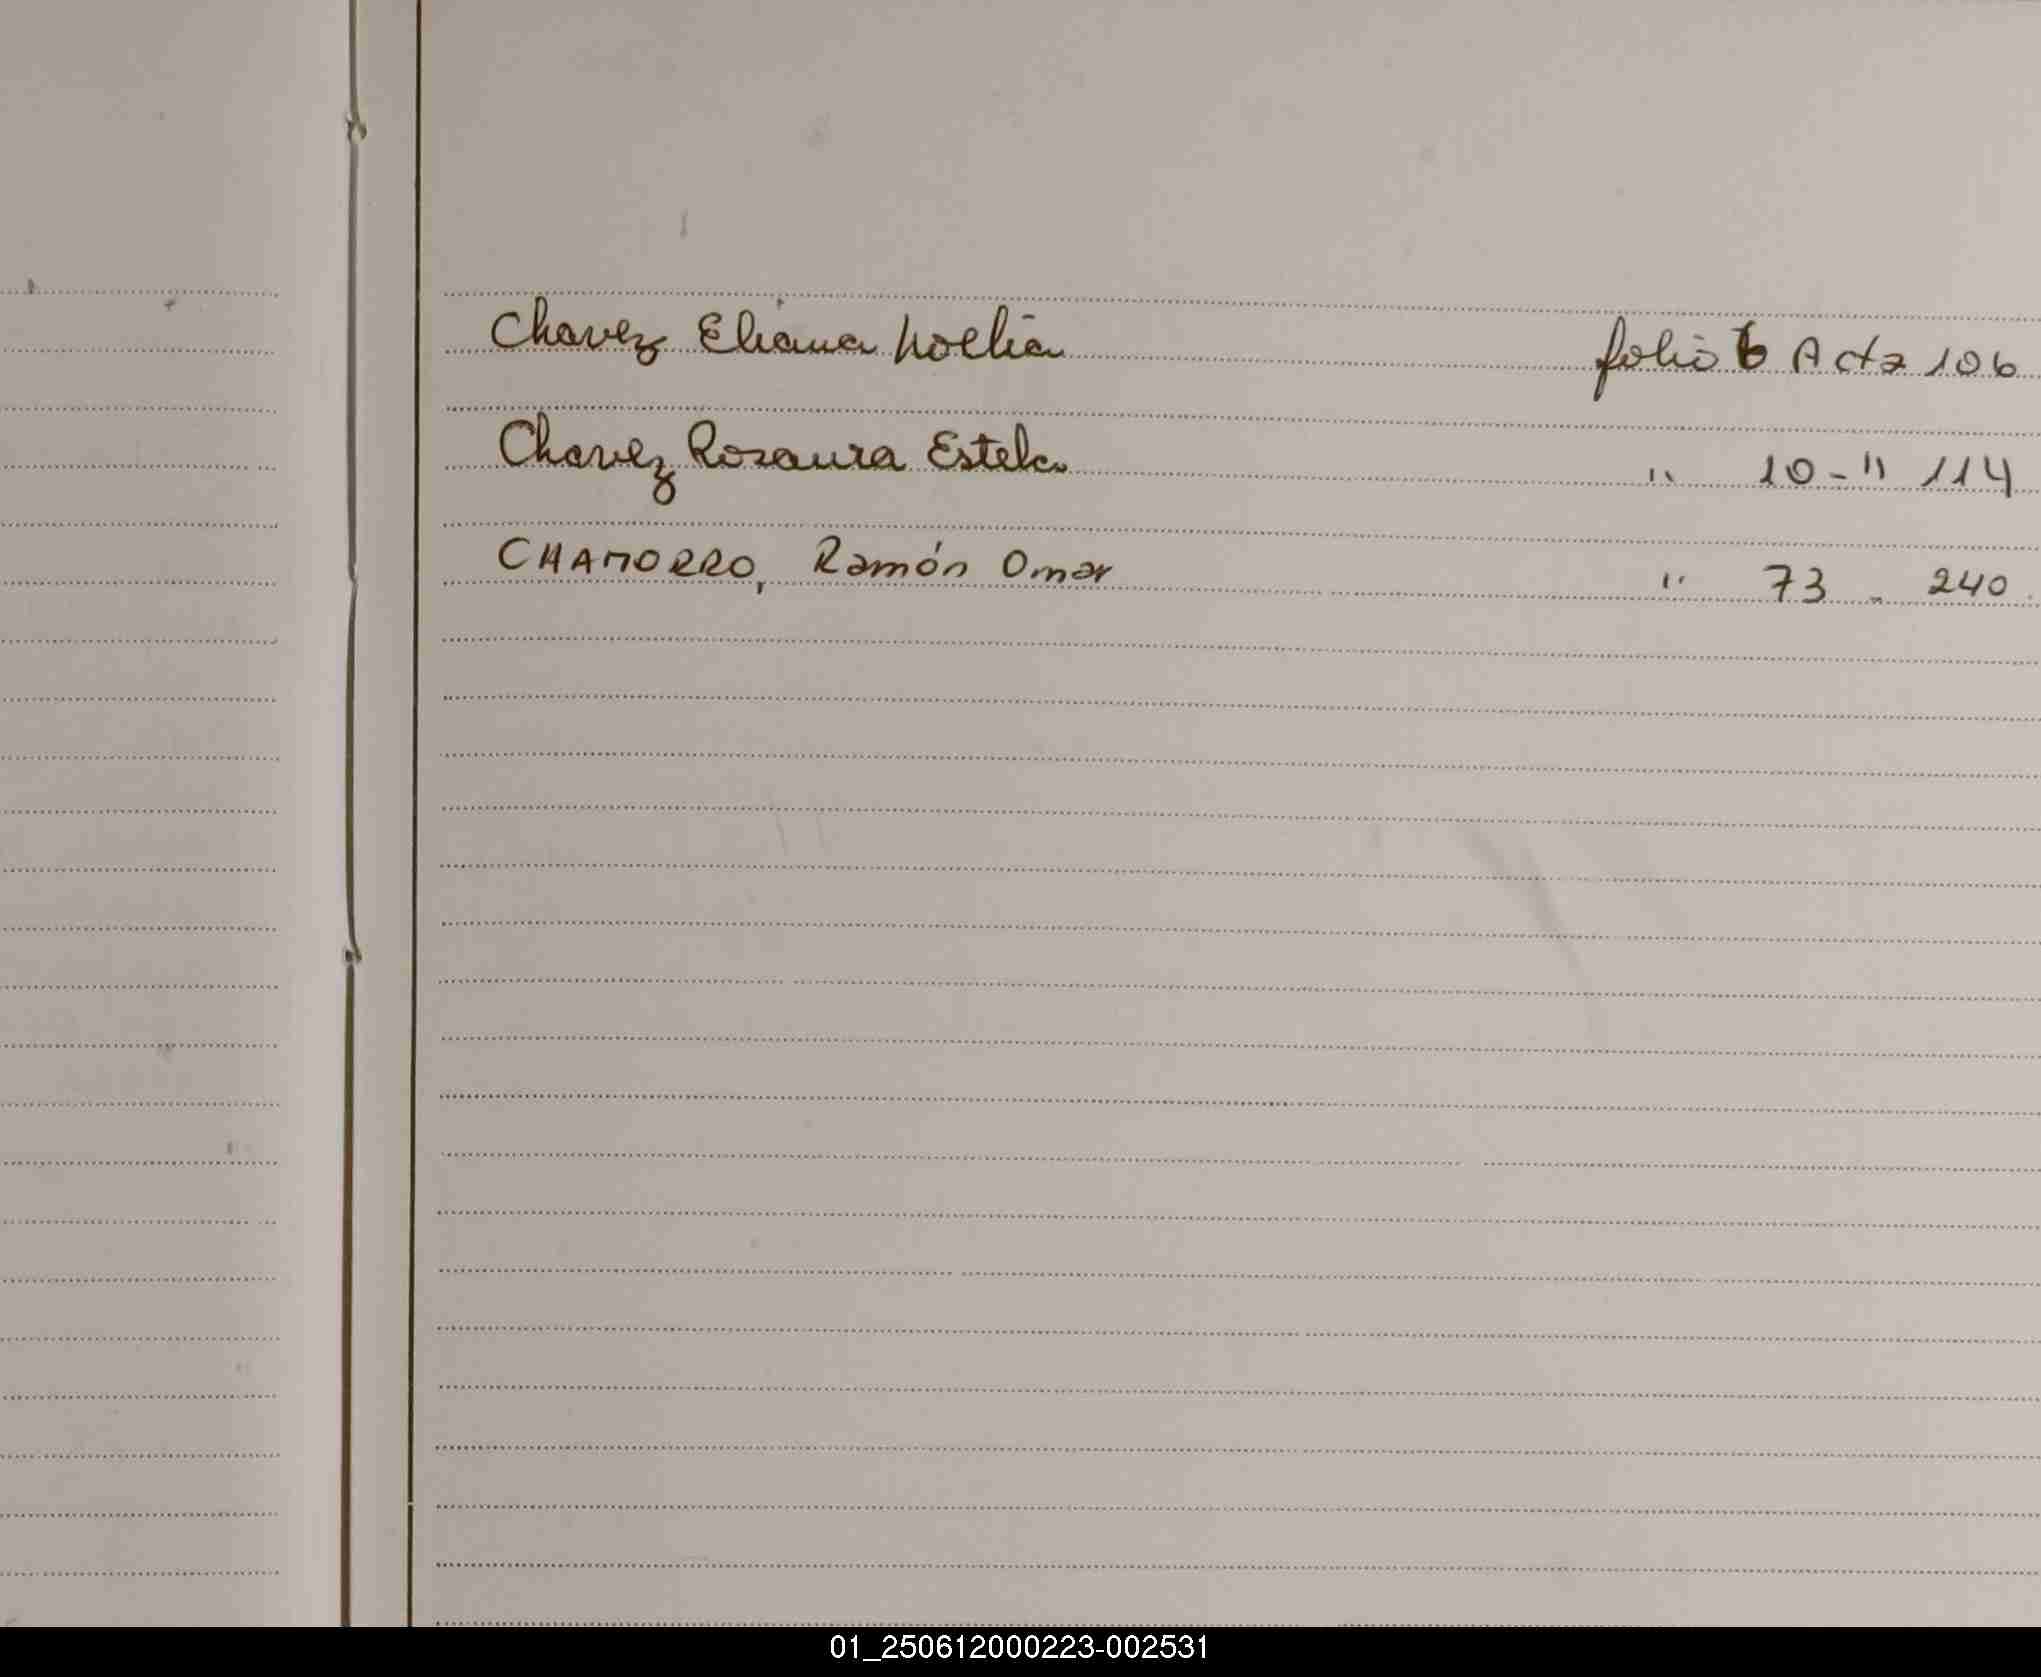 Chavez Eliana Noelia folio 6 Acta 106
Chavez Rosaura Estela " 10 - " 114
CHAMORRO, Ramón Omar " 73 - 240
01_250612000223-002531